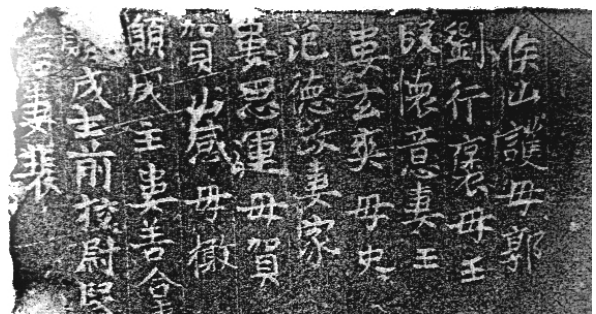 侯山護母郭
劉行母王
懷意妻王
婁玄爽母史
范德妻家
婁思運母賀
賀感母
願成主婁善合
成主前校尉
妻裴